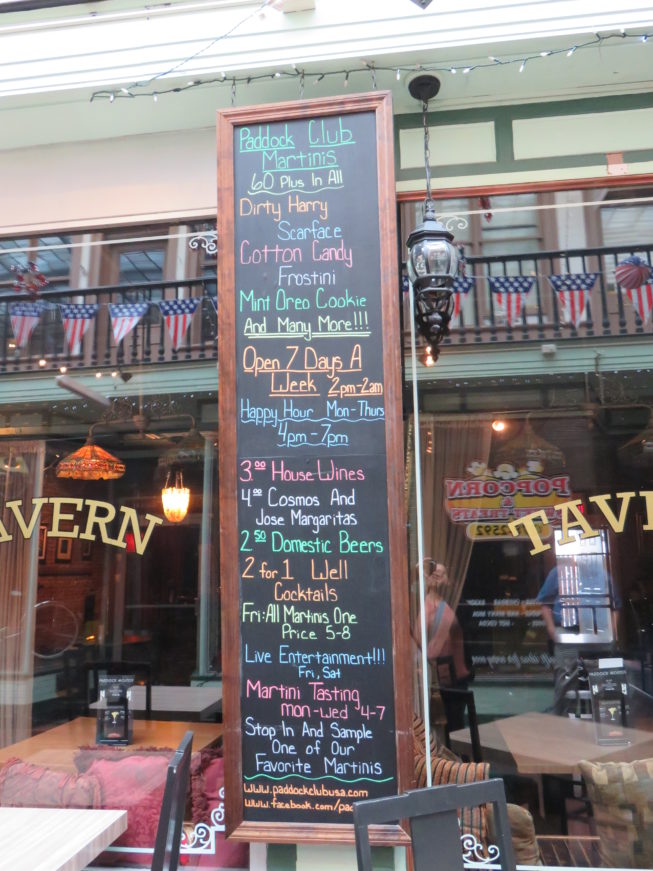 Paddock Club
Martinis
60 Plus In All
Dirty Harry
Scarface
Cotton Candy
Frostini
Mint Oreo Cookie
And Many More!!!
Open 7 Days A
Week 2pm-2am
Happy Hour Mon-Thurs
4pm-7pm
3.00 House Wines
4.00 Cosmos And
Jose Margaritas
2.50 Domestic Beers
2 for 1 Well
Cocktails
Fri: All Martinis One
Price 5-8
Live Entertainment!!!
Fri, Sat
Martini Tasting
mon-wed 4-7
Stop In And Sample
One of Our
Favorite Martinis
www.paddockclubusa.com
www.facebook.com/pad
AVERN
TAV
POPCORN
&